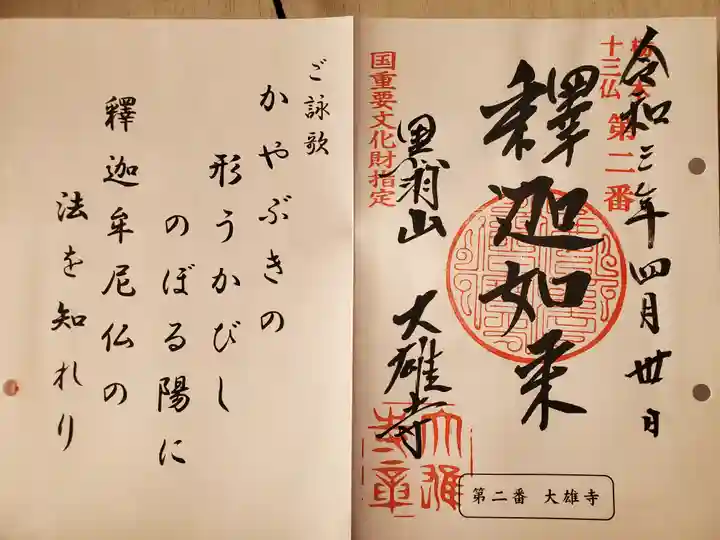 令和三年四月卅日
十三仏 第二番
釋迦如来
国重要文化財指定
黒羽山 大雄寺
大雄
寺章
第二番 大雄寺
ご詠歌
かやぶきの
形うかびし
のぼる陽に
釋迦牟尼仏の
法を知れり